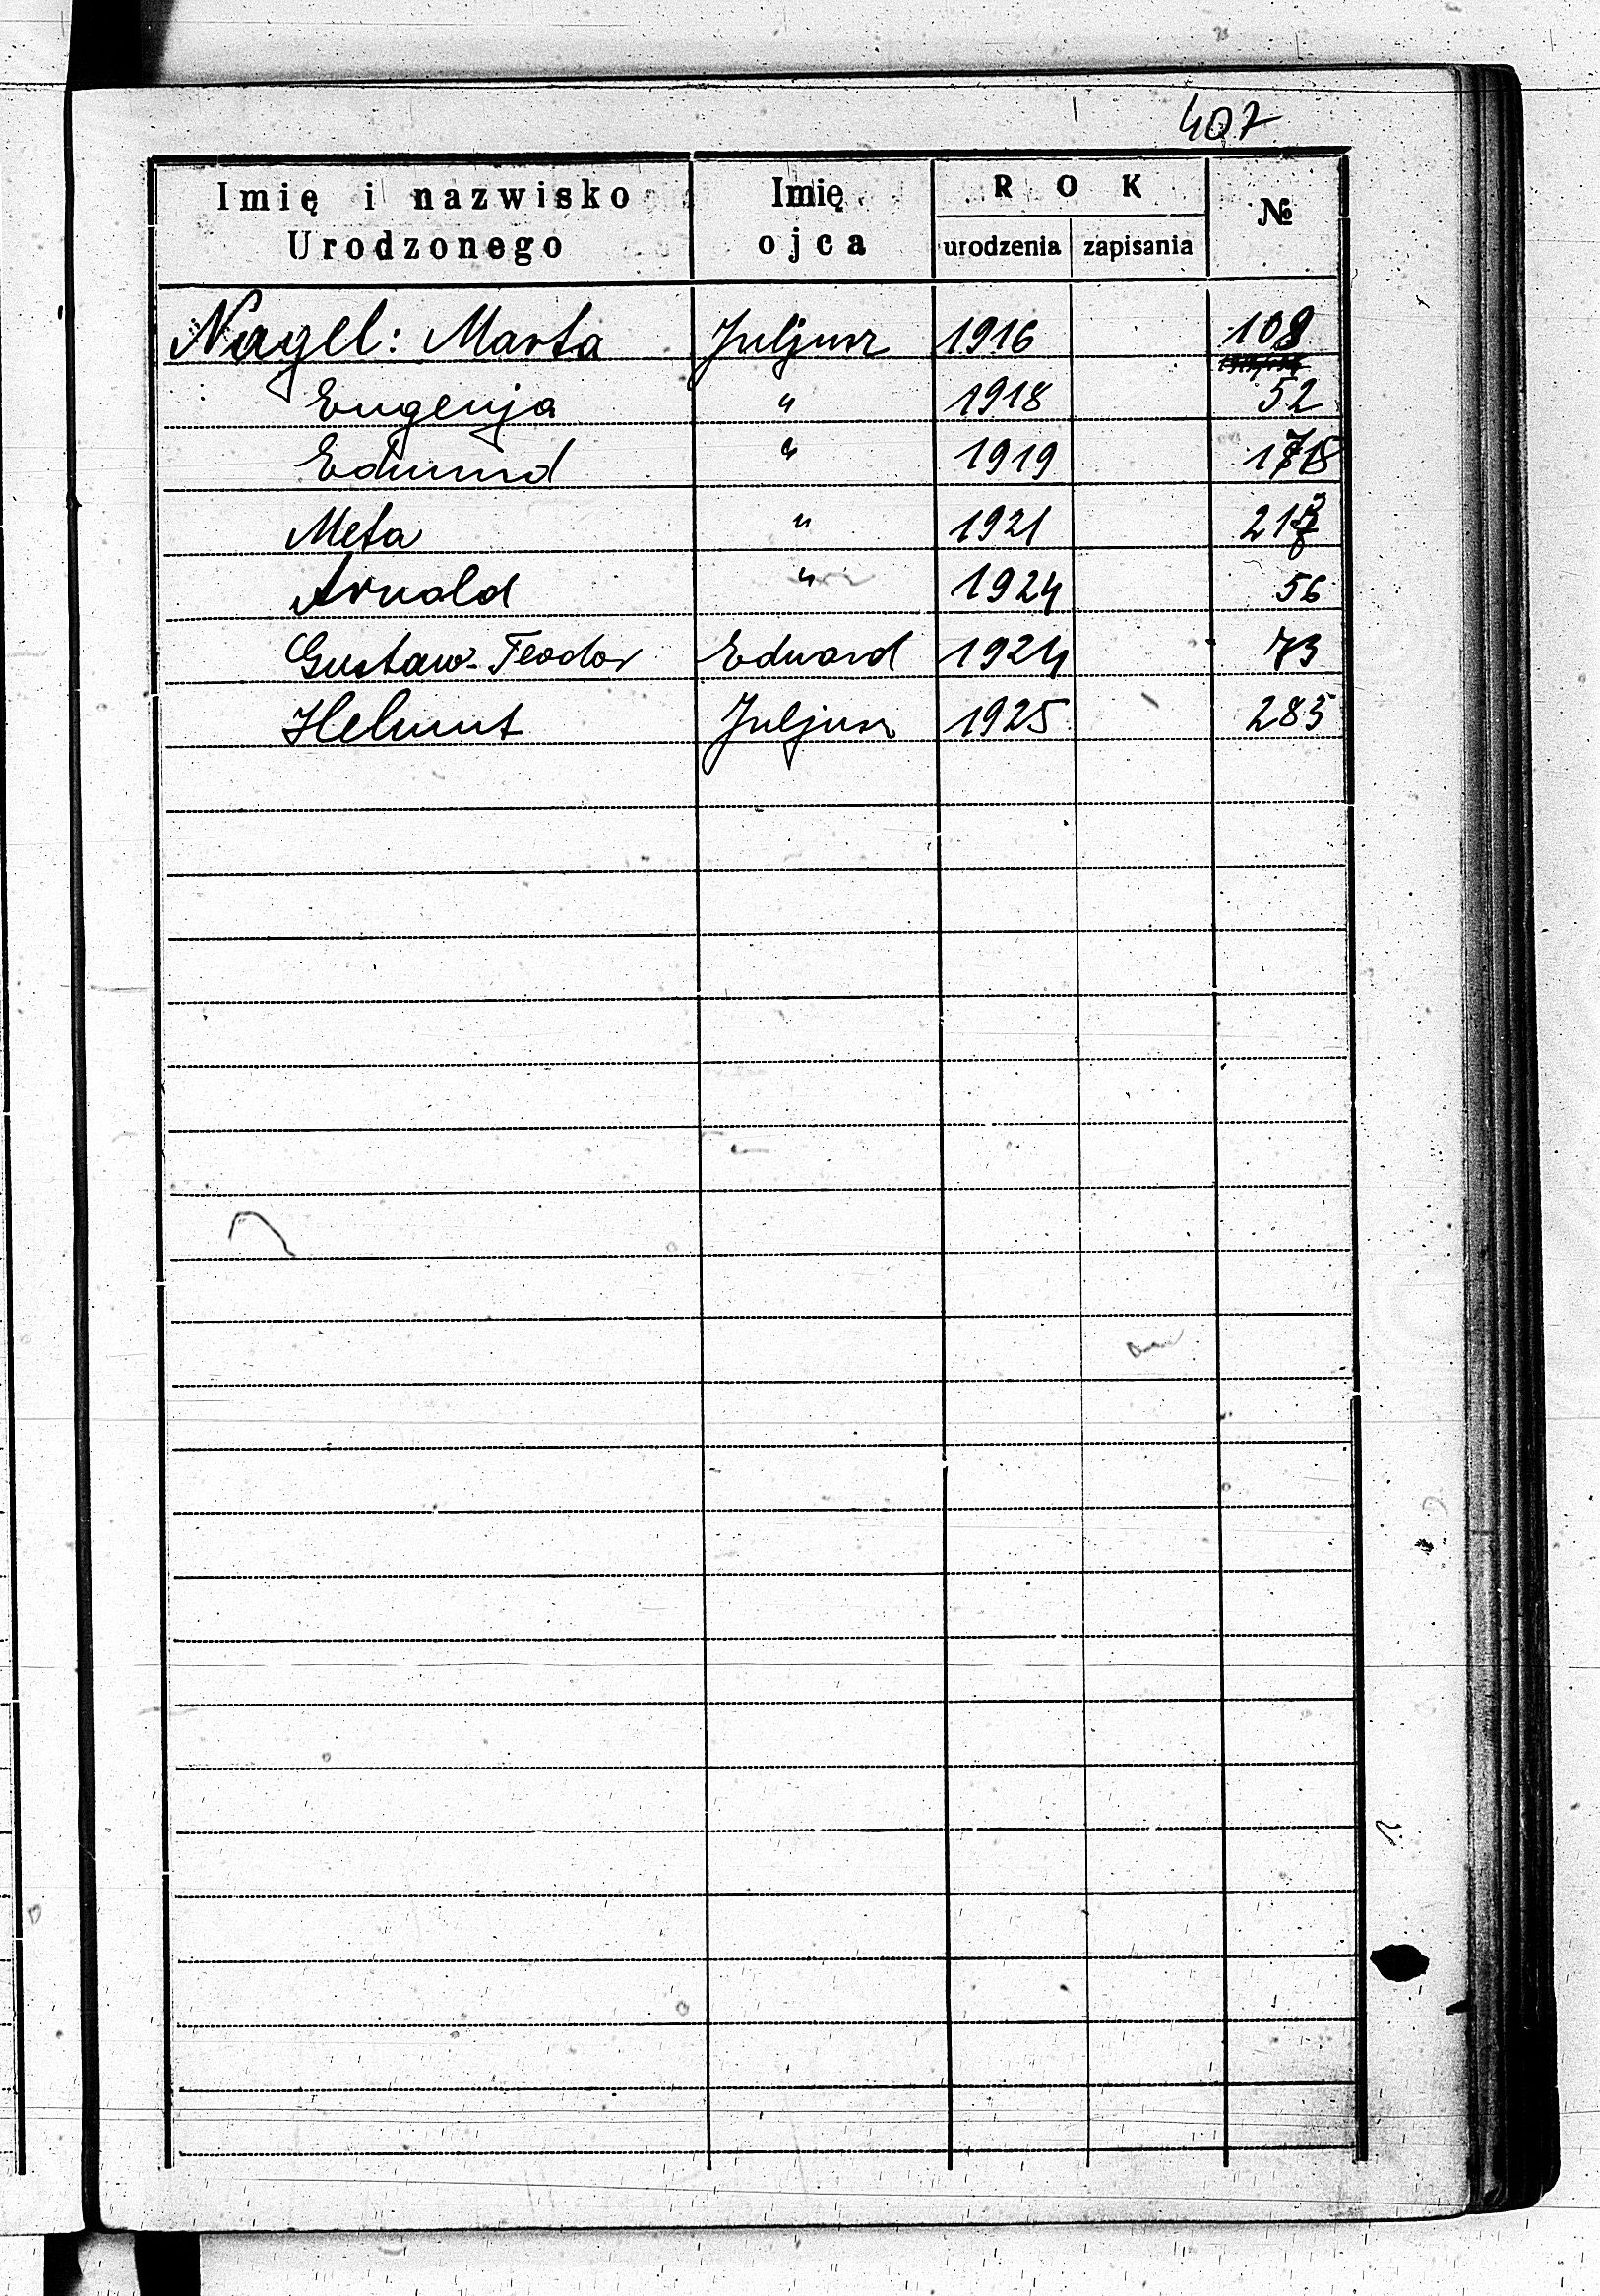 407
Imię i nazwisko Urodzonego Imię ojca ROK urodzenia zapisania №
Nagel: Marta Juljusz 1916 108
Eugenja " 1918 52
Edmund " 1919
Meta " 1921
Arnold " 1924 56
Gustaw-Teodor Edward 1924 73
Helmut Juljusz 1925 285